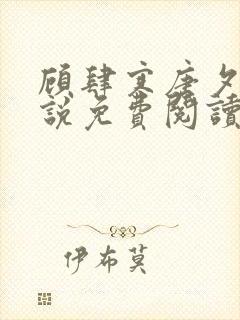 顾肆寒唐夕
说免费阅读
伊布莫